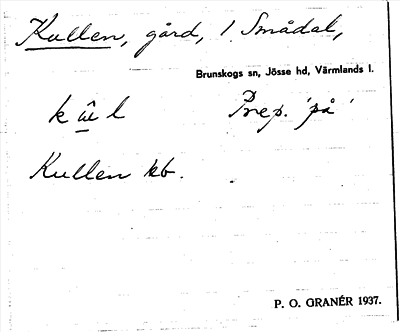 Kullen, gård, 1 Smådal,
Brunskogs sn, Jösse hd, Värmlands l.
Prep. 'på'
Kullen kb.
P. O. GRANÉR 1937.